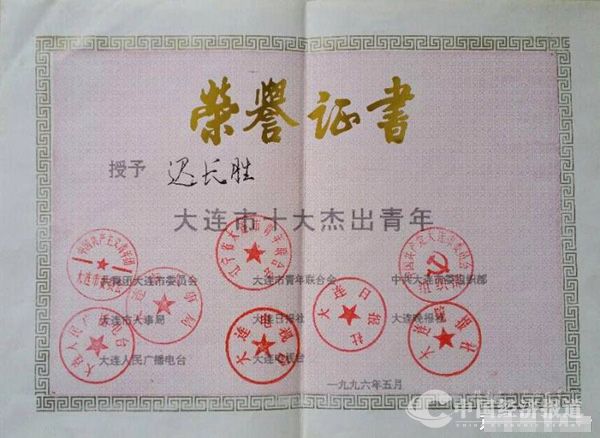 榮譽证書
授予 迟长胜
大连市十大杰出青年
共青团大连市委员会 大连市青年联合会 中共大连市委组织部
大连市人事局 大连日报社 大连晚报社
大连人民广播电台 大连电视台
一九九六年五月
中国经济报道